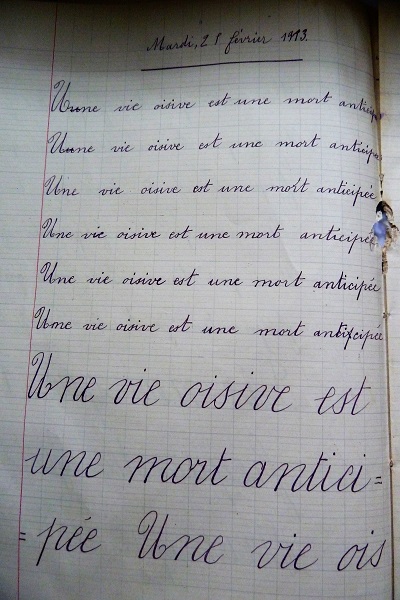 Mardi, 25 février 1913.
Une vie oisive est une mort anticipée
Une vie oisive est une mort anticipée
Une vie oisive est une mort anticipée
Une vie oisive est une mort anticipée
Une vie oisive est une mort anticipée
Une vie oisive est une mort anticipée
Une vie oisive est
une mort antici=
=pée Une vie ois